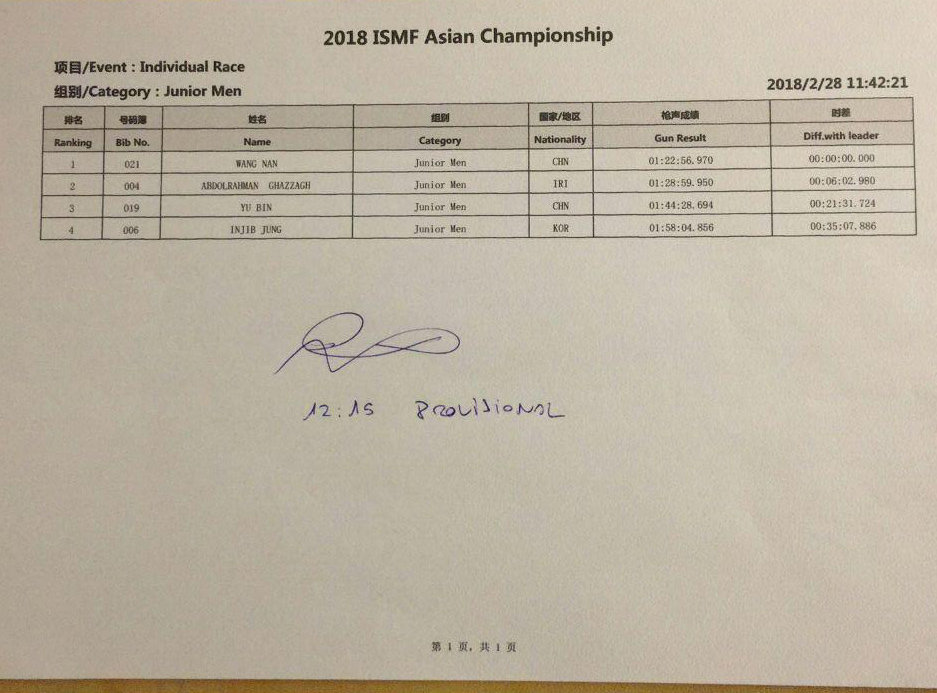 2018 ISMF Asian Championship
项目/Event : Individual Race
组别/Category : Junior Men
2018/2/28 11:42:21
排名 号码簿 姓名 组别 国家/地区 枪声成绩 时差
Ranking Bib No. Name Category Nationality Gun Result Diff.with leader
1 021 WANG NAN Junior Men CHN 01:22:56.970 00:00:00.000
2 004 ABDOLRAHMAN GHAZZAGH Junior Men IRI 01:28:59.950 00:06:02.980
3 019 YU BIN Junior Men CHN 01:44:28.694 00:21:31.724
4 006 INJIB JUNG Junior Men KOR 01:58:04.856 00:35:07.886
12:15 PROVISIONAL
第 1 页, 共 1 页